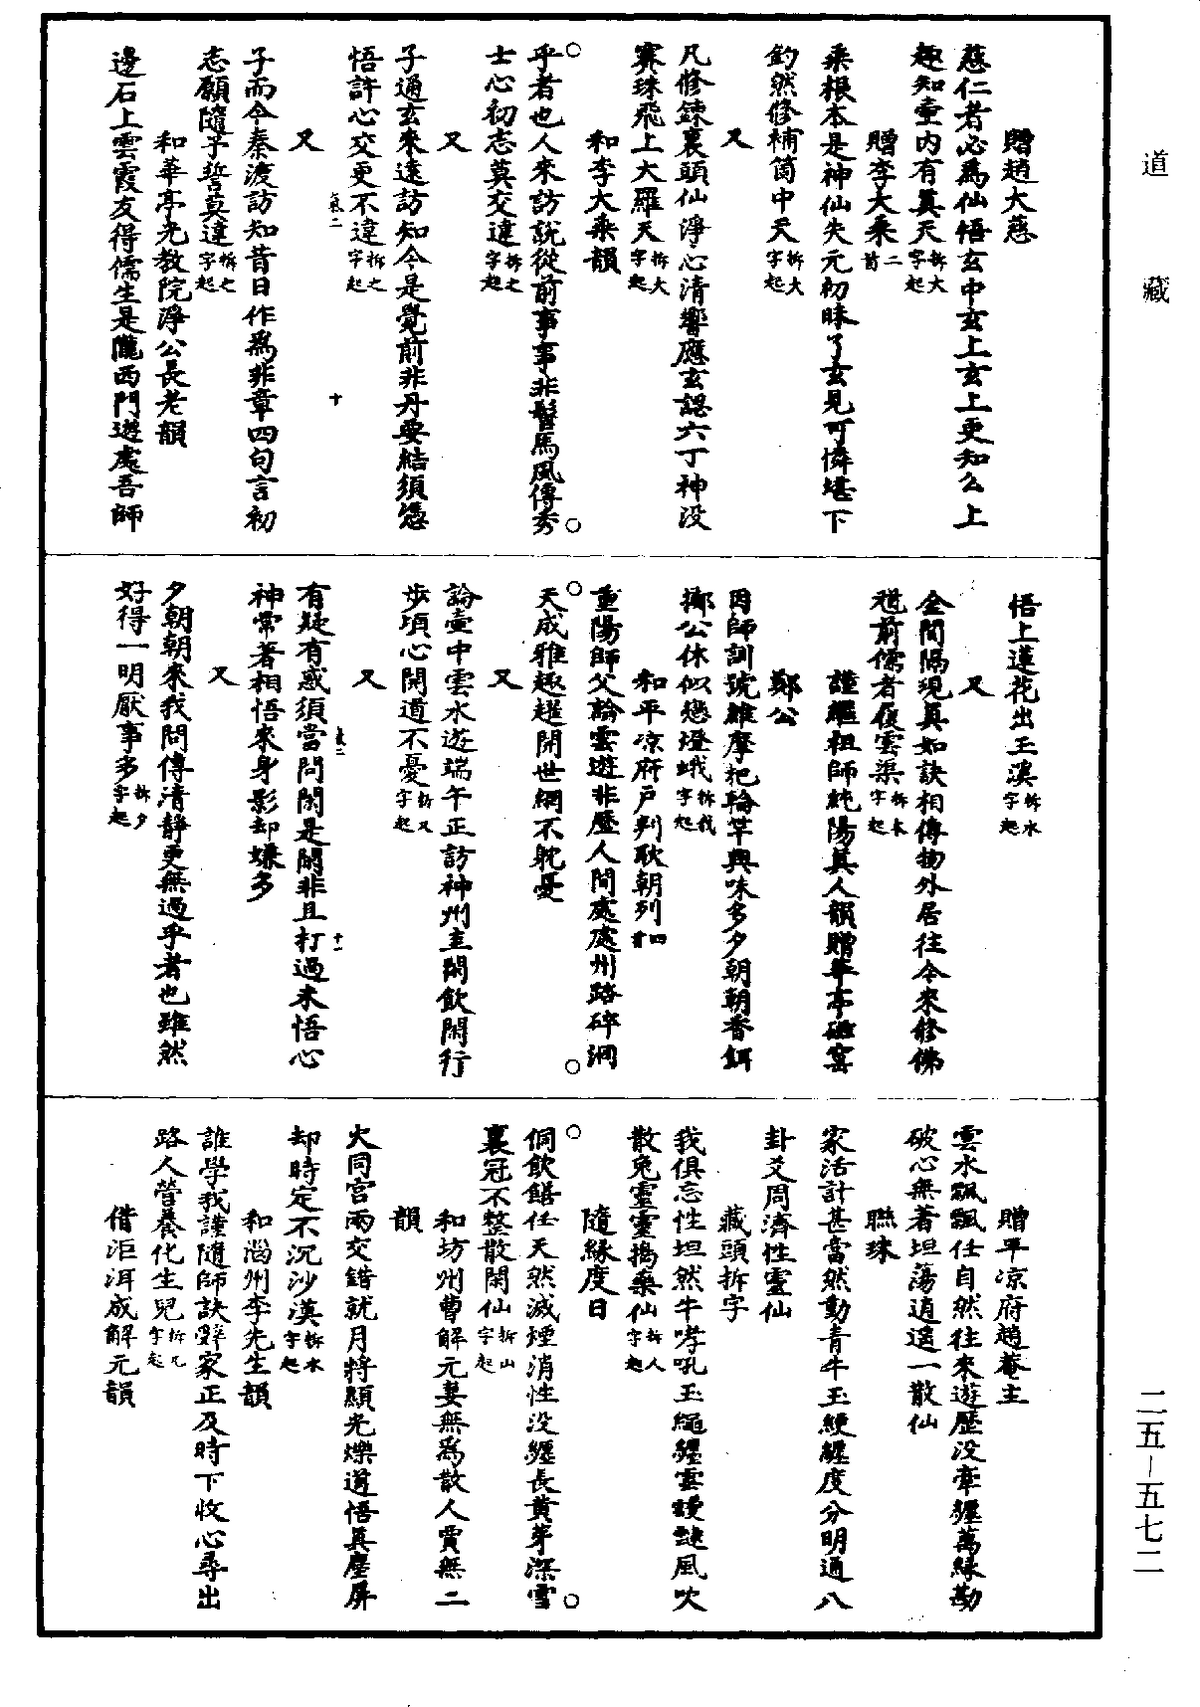 道藏
贈趙大慈
慈仁者必為仙悟玄中玄上玄上更知公上
趣知壷内有真天拆大字起
贈李大乘二首
乘根本是神仙失元初昧了玄見可憐堪下
釣然修補箇中天拆大字起
又
凡修鍊裏頭仙淨心清響應玄認六丁神没
寨珠飛上大羅天拆大字起
和李大乘韻
乎者也人來訪說從前事事非髻馬風傳秀
士心初志莫交違拆之字起
又
子通玄來遠訪知今是覺前非丹要結須憑
悟許心交更不違拆之字起
十
又
子而今秦渡訪知昔日作為非章四句言初
志願隨予誓莫違拆之字起
和華亭光教院淨公長老韻
邊石上雲霞友得儒生是隴西門遊處吾師
悟上蓮花出玉溪拆水字起
又
全間隔現真如訣相傳物外居往今來修佛
冠前儒者復雲渠拆木字起
謹繼祖師純陽真人韻贈華亭磁窰
鄭公
因師訓號維摩把輪竿興味多夕朝朝香餌
擲公休似戀燈蛾拆我字起
和平涼府戶判耿朝列四首
重陽師父論雲遊非歷人間處處州路碎洞
天成雅趣趕開世網不躭憂
又
論壷中雲水遊端午正訪神州主閑飲閑行
步頃心開道不憂拆又字起
又
有疑有惑須當問閑是閑非且打過未悟心
神常著相悟來身影却嫌多
十一
又
夕朝朝來我問傳清靜更無過乎者也雖然
好得一明厭事多拆夕字起
贈平涼府趙菴主
雲水飄飄任自然往來遊歷没牽纏萬緣勘
破心無著坦蕩逍遙一散仙
聮珠
家活計甚當然動青牛玉綆纏度分明通八
卦爻周濟性靈仙
藏頭拆字
我俱忘性坦然牛哮吼玉繩纏雲謾謎風吹
散兔靈靈搗藥仙拆人字起
隨緣度日
侗飲饍任天然滅煙消性没纏長黄芽深雪
裏冠不整散閑仙拆山字起
和坊州曹解元妻無為散人賈無二
韻
火同宫兩交錯就月將顯光爍道悟真塵屏
却時定不沉沙漠拆水字起
和尚州李先生韻
誰學我謹隨師訣辭家正及時下收心尋出
路人營養化生兒拆兀字起
借洰洱成解元韻
二五－五七二